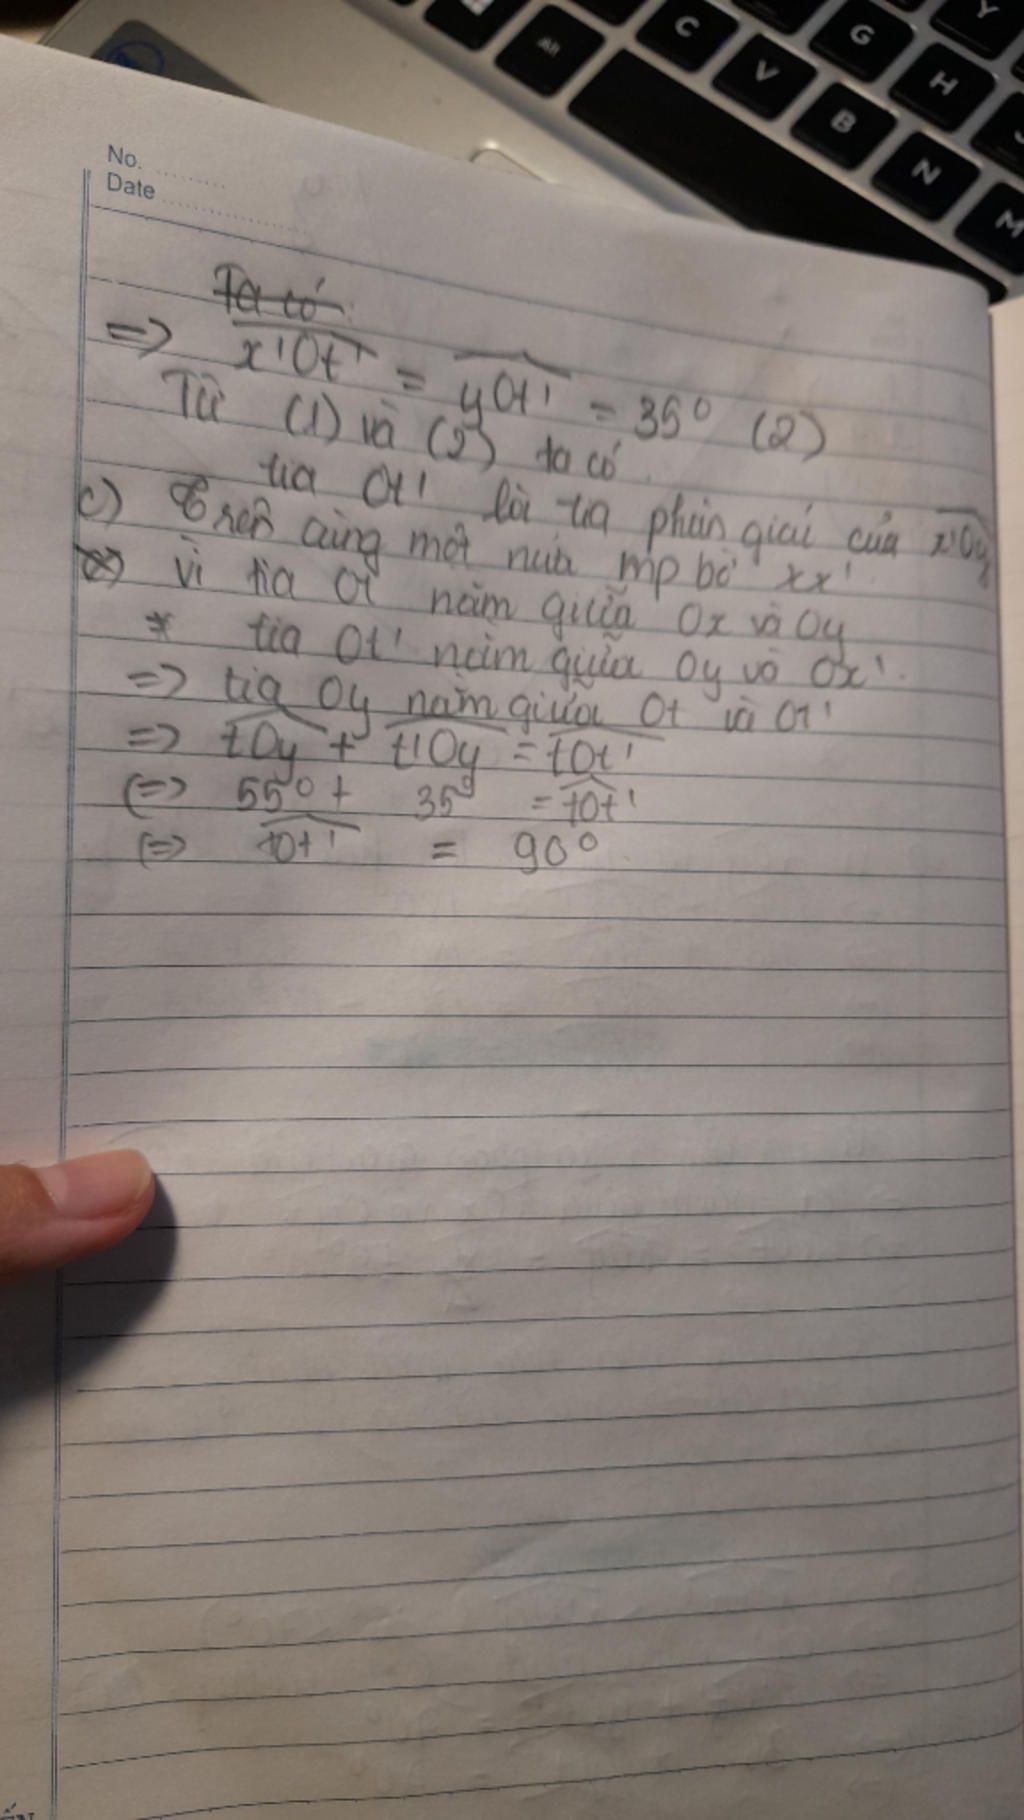 No. .........
Date .................
Ta có:
=> x'Ot' = yOt' = 35° (2)
Từ (1) và (2) ta có
tia Ot' là tia phân giác của x'Oy
c) Trên cùng một nửa mp bờ xx'.
vì tia Ot nằm giữa Ox và Oy
* tia Ot' nằm giữa Oy và Ox'.
=> tia Oy nằm giữa Ot và Ot'
=> tOy + t'Oy = tOt'
(=> 55° + 35° = tOt'
(=> tOt' = 90°
Alt
C
V
B
N
M
G
H
Y